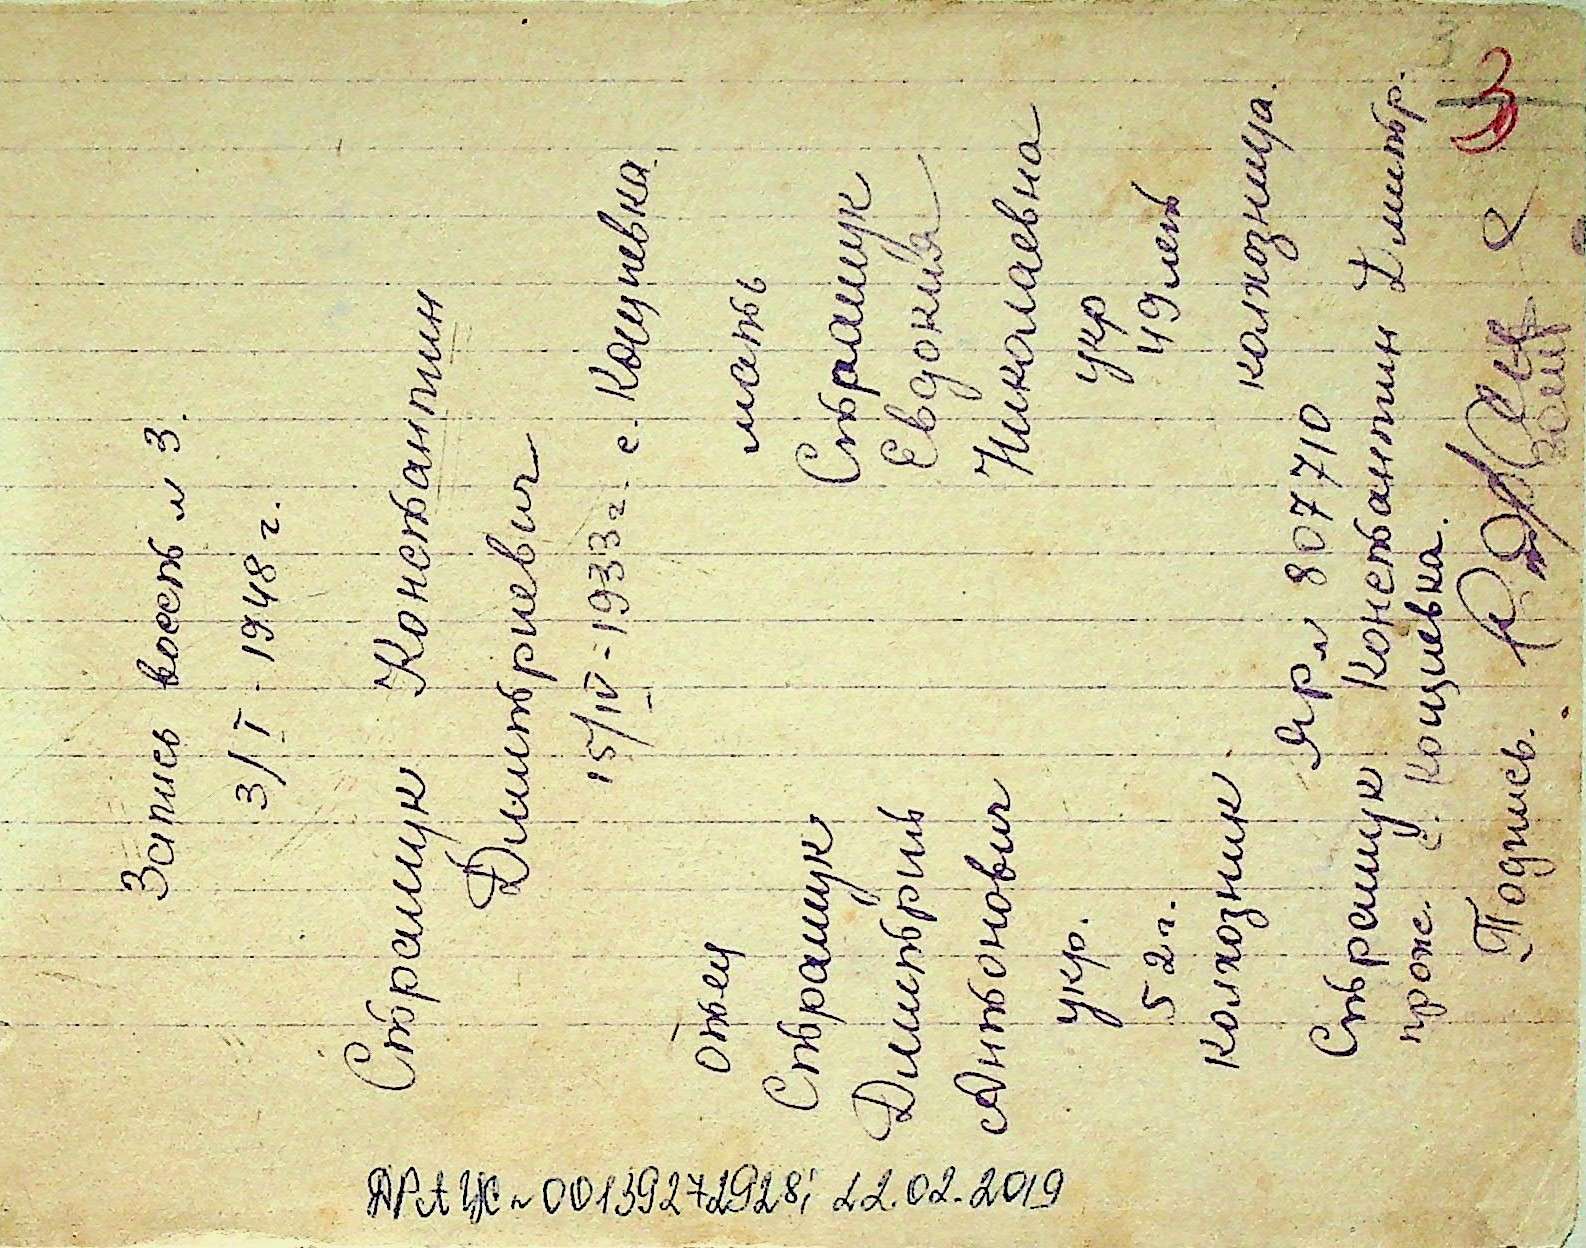 Запись восст № 3.
3/I - 1948 г.
Страшук Константин
Дмитриевич
15/IV - 1933 г. с. Коцюевка
отец
Страшук
Дмитрий
Антонович
укр.
52 г.
колхозник
мать
Страшук
Евдокия
Николаевна
укр
49 лет
колхозница.
ЯР № 807710
Страшук Константин Дмитр.
прож. с.
Подпись.
3
3
ДРАЦС № 00139272928; 22.02.2019